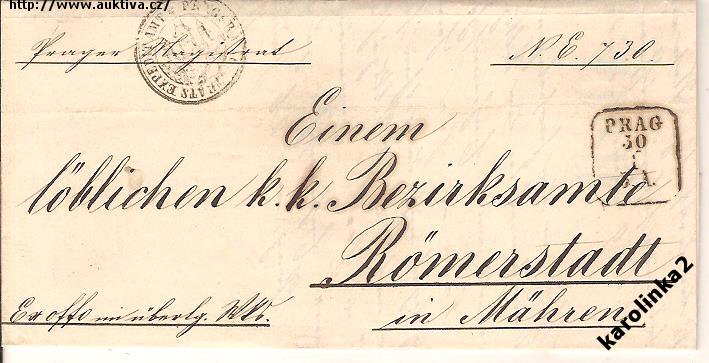 http://www.auktiva.cz/
Prager Magistrat
N. E. 730.
PRAG
30
Einem
löblichen k. k. Bezirksamte
Römerstadt
in Mähren
Exoffo im übertg. Wks.
karolinka2